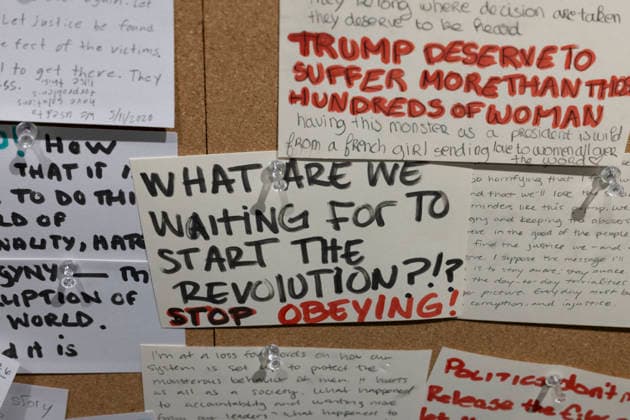 Let justice be found
feet of the victims.
to get there. They
3/11/2020
HOW
THAT IF I
TO DO THI
LD OF
NALITY, HAT
GYNY — TH
UPTION OF
WORLD.
d it is
story
They belong where decision are taken
they deserve to be heard
TRUMP DESERVE TO
SUFFER MORE THAN THOSE
HUNDREDS OF WOMAN
having this monster as a president is wild
from a french girl sending love to women all over
the word ♡
WHAT ARE WE
WAITING FOR TO
START THE
REVOLUTION?!?
STOP OBEYING!
so horrifying that
nd that we'll lose
minders like this
and keeping the abusers
in the good of the people
find the justice we
I suppose the message I'll
is to stay aware, stay
the day-to-day
picture. Everyday must be
corruption, and injustice.
I'm at a loss for words on how our
system is set up to protect the
monsterous behavior of men. It hurts
us all as a society. What happened
to accountability and wanting more
from our leaders? What happened to
Politics don't
Release the